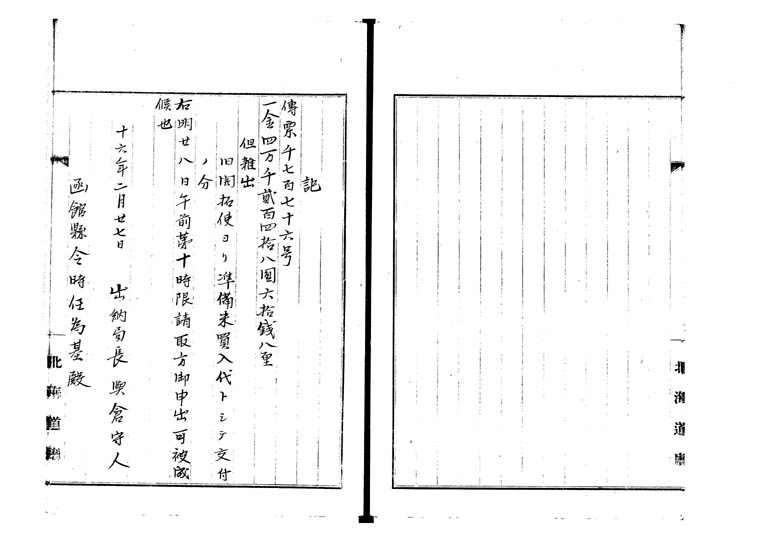 記
傳票千七百七十六号
一金四万千貳百四拾八圓六拾錢八厘
但雑出
旧開拓使ヨリ準備米買入代トシテ交付
ノ分
右明廿八日午前第十時限請取方御申出可被成
候也
十六年二月廿七日 出納局長 奥倉守人
函館縣令時任為基殿
北海道廳
北海道廳